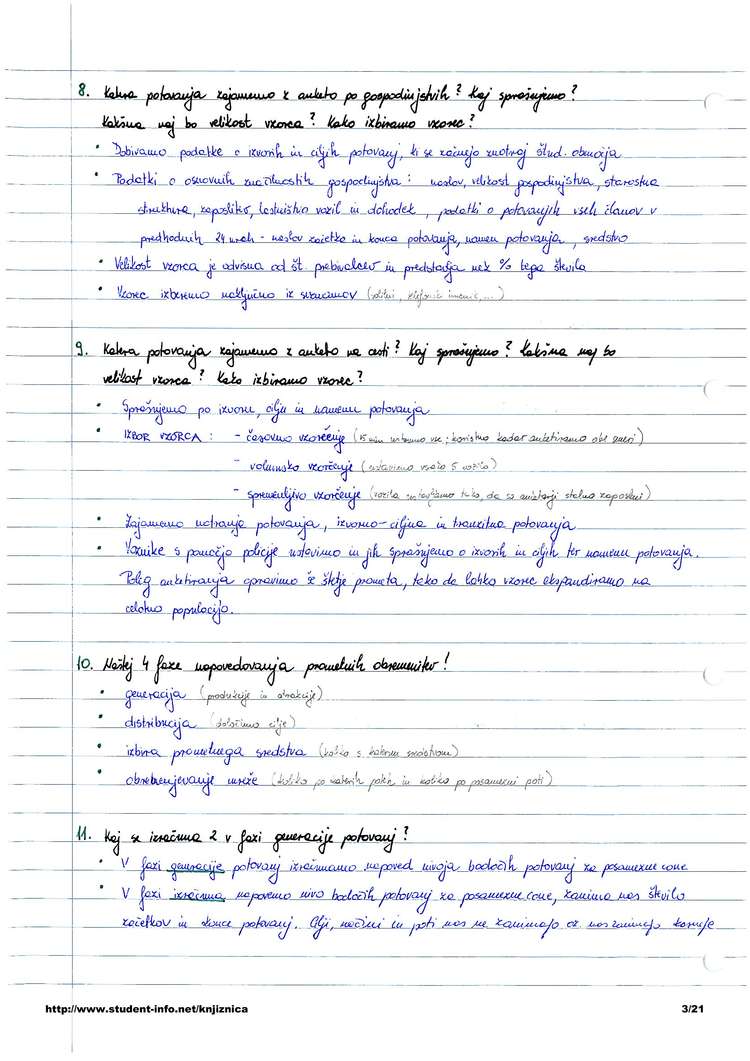 8. Katera potovanja zajamemo z anketo po gospodinjstvih? Kaj sprašujemo?
Kakšna naj bo velikost vzorca? Kako izbiramo vzorec?
• Dobivamo podatke o izvorih in ciljih potovanj, ki se začnejo znotraj štud. območja
• Podatki o osnovnih značilnostih gospodinjstva: naslov, velikost gospodinjstva, starostna
struktura, zaposlitev, lastništvo vozil in dohodek, podatki o potovanjih vseh članov v
predhodnih 24 urah - naslov začetka in konca potovanja, namen potovanja, sredstvo
• Velikost vzorca je odvisna od št. prebivalcev in predstavlja nek % tega števila
• Vzorec izberemo naključno iz seznamov (volilni, telefonski imenik, ...)
9. Katera potovanja zajamemo z anketo na cesti? Kaj sprašujemo? Kakšna naj bo
velikost vzorca? Kako izbiramo vzorec?
• Sprašujemo po izvoru, cilju in namenu potovanja
• IZBOR VZORCA: - časovno vzorčenje (15 min ustavimo vse; koristno kadar anketiramo obe smeri)
- volumsko vzorčenje (ustavimo vsako 5 vozilo)
- spremenljivo vzorčenje (vozila ustavljamo tako, da so anketarji stalno zaposleni)
• Zajamemo notranja potovanja, izvorno-ciljna in tranzitna potovanja
• Voznike s pomočjo policije ustavimo in jih sprašujemo o izvorih in ciljih ter namenu potovanja.
Poleg anketiranja opravimo še štetje prometa, tako da lahko vzorec ekspandiramo na
celotno populacijo.
10. Naštej 4 faze napovedovanja prometnih obremenitev!
• generacija (produkcije in atrakcije)
• distribucija (določimo cilje)
• izbira prometnega sredstva (koliko s katerim sredstvom)
• obremenjevanje mreže (koliko po katerih poteh in koliko po posamezni poti)
11. Kaj se izračuna 2 v fazi generacije potovanj?
• V fazi generacije potovanj izračunamo napoved nivoja bodočih potovanj za posamezne cone
• V fazi izračuna napovemo nivo bodočih potovanj za posamezne cone, zanima nas število
začetkov in koncev potovanj. Cilji, načini in poti nas ne zanimajo oz. nas zanimajo kasneje
http://www.student-info.net/knjiznica
3/21